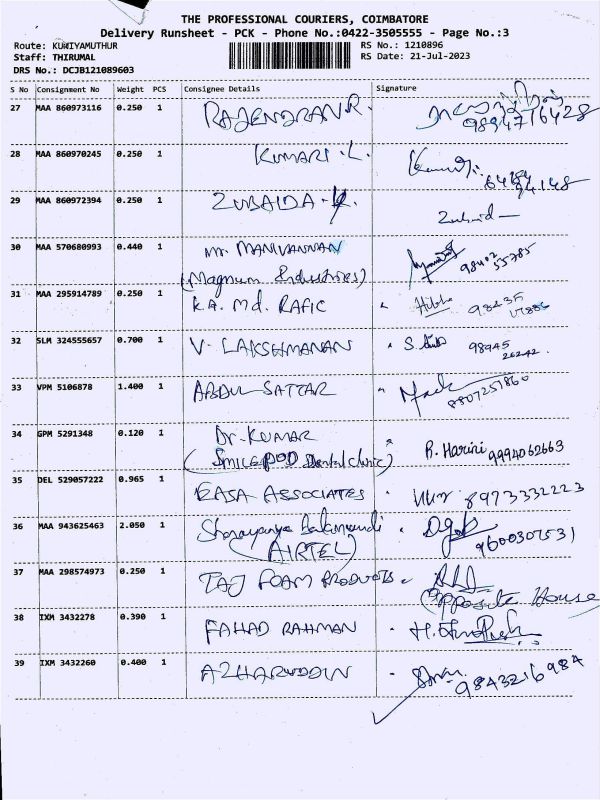 THE PROFESSIONAL COURIERS, COIMBATORE
Delivery Runsheet - PCK - Phone No.:0422-3505555 - Page No.:3
Route: KUNIYAMUTHUR RS No.: 1210896
Staff: THIRUMAL RS Date: 21-Jul-2023
DRS No.: DCJB121089603
S No Consignment No Weight PCS Consignee Details Signature
27 MAA 860973116 0.250 1 RAJENDRAN.R.
9894716428
28 MAA 860970245 0.250 1 KUMARI.L.
29 MAA 860972394 0.250 1 ZUBAIDA.K.
30 MAA 570680993 0.440 1 Mr. MANIVANNAN 98402 55785
(Magnum Industries)
31 MAA 295914789 0.250 1 K.A. Md. RAFIC 98435
32 SLM 324555657 0.700 1 V. LAKSHMANAN 98945
26242.
33 VPM 5106878 1.400 1 ABDUL SATTAR 8807251860
34 GPM 5291348 0.120 1 Dr. KUMAR
(SMILEPOD Dental clinic) R. Harini 9994062663
35 DEL 529057222 0.965 1 EASA ASSOCIATES 8973332223
36 MAA 943625463 2.050 1 9600307531
(AIRTEL)
37 MAA 298574973 0.250 1 TAJ FOAM PRODUCTS
(Opposite House
38 IXM 3432278 0.390 1 FAHAD RAHMAN
39 IXM 3432260 0.400 1 AZHARUDDIN 9843216984